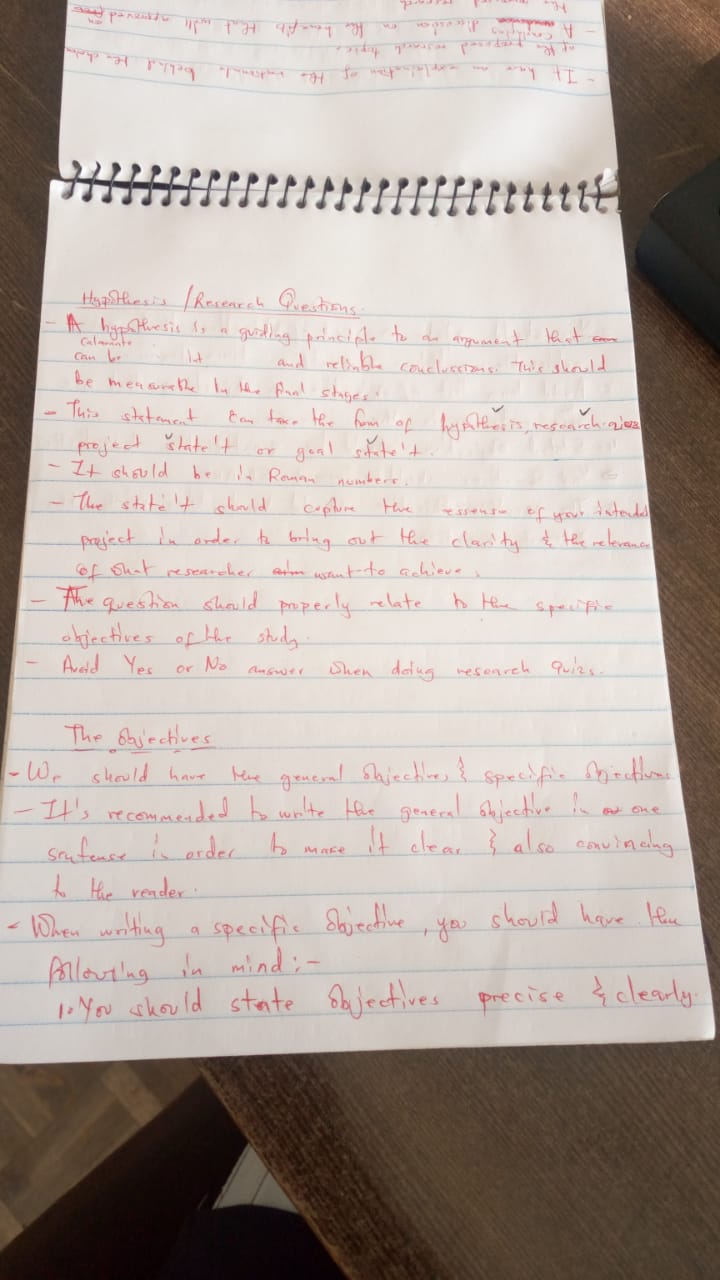 - It have an explaination of the rationale behind the choice
of the proposed research topic.
- A discussion on the benefits that will
the research
Hypothesis / Research Questions.
- A hypothesis is a guiding principle to an argument that
can be It and reliable conclussions. This should
be measurable in the final stages.
- This statement can take the form of hypothesis, research
project state't or goal state't.
- It should be in Roman numbers.
- The state't should capture the essense of your intended
project in order to bring out the clarity & the relevance
of what researcher want to achieve.
- The question should properly relate to the specific
objectives of the study.
- Avoid Yes or No answer when doing research quizs.
The Objectives
- We should have the general objectives & specific objectives
- It's recommended to write the general objective in one
sentense in order to make it clear & also convincing
to the reader.
- When writing a specific objective, you should have the
following in mind:-
1. You should state objectives precise & clearly.